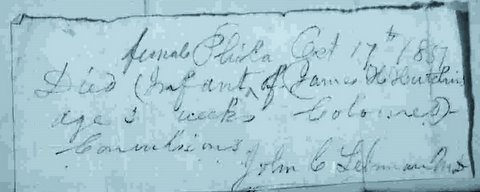 female Phila Oct 17th 1867
Died (Infant of James H
age 3 weeks Coloured)
Convulsions
John C Lehman MD